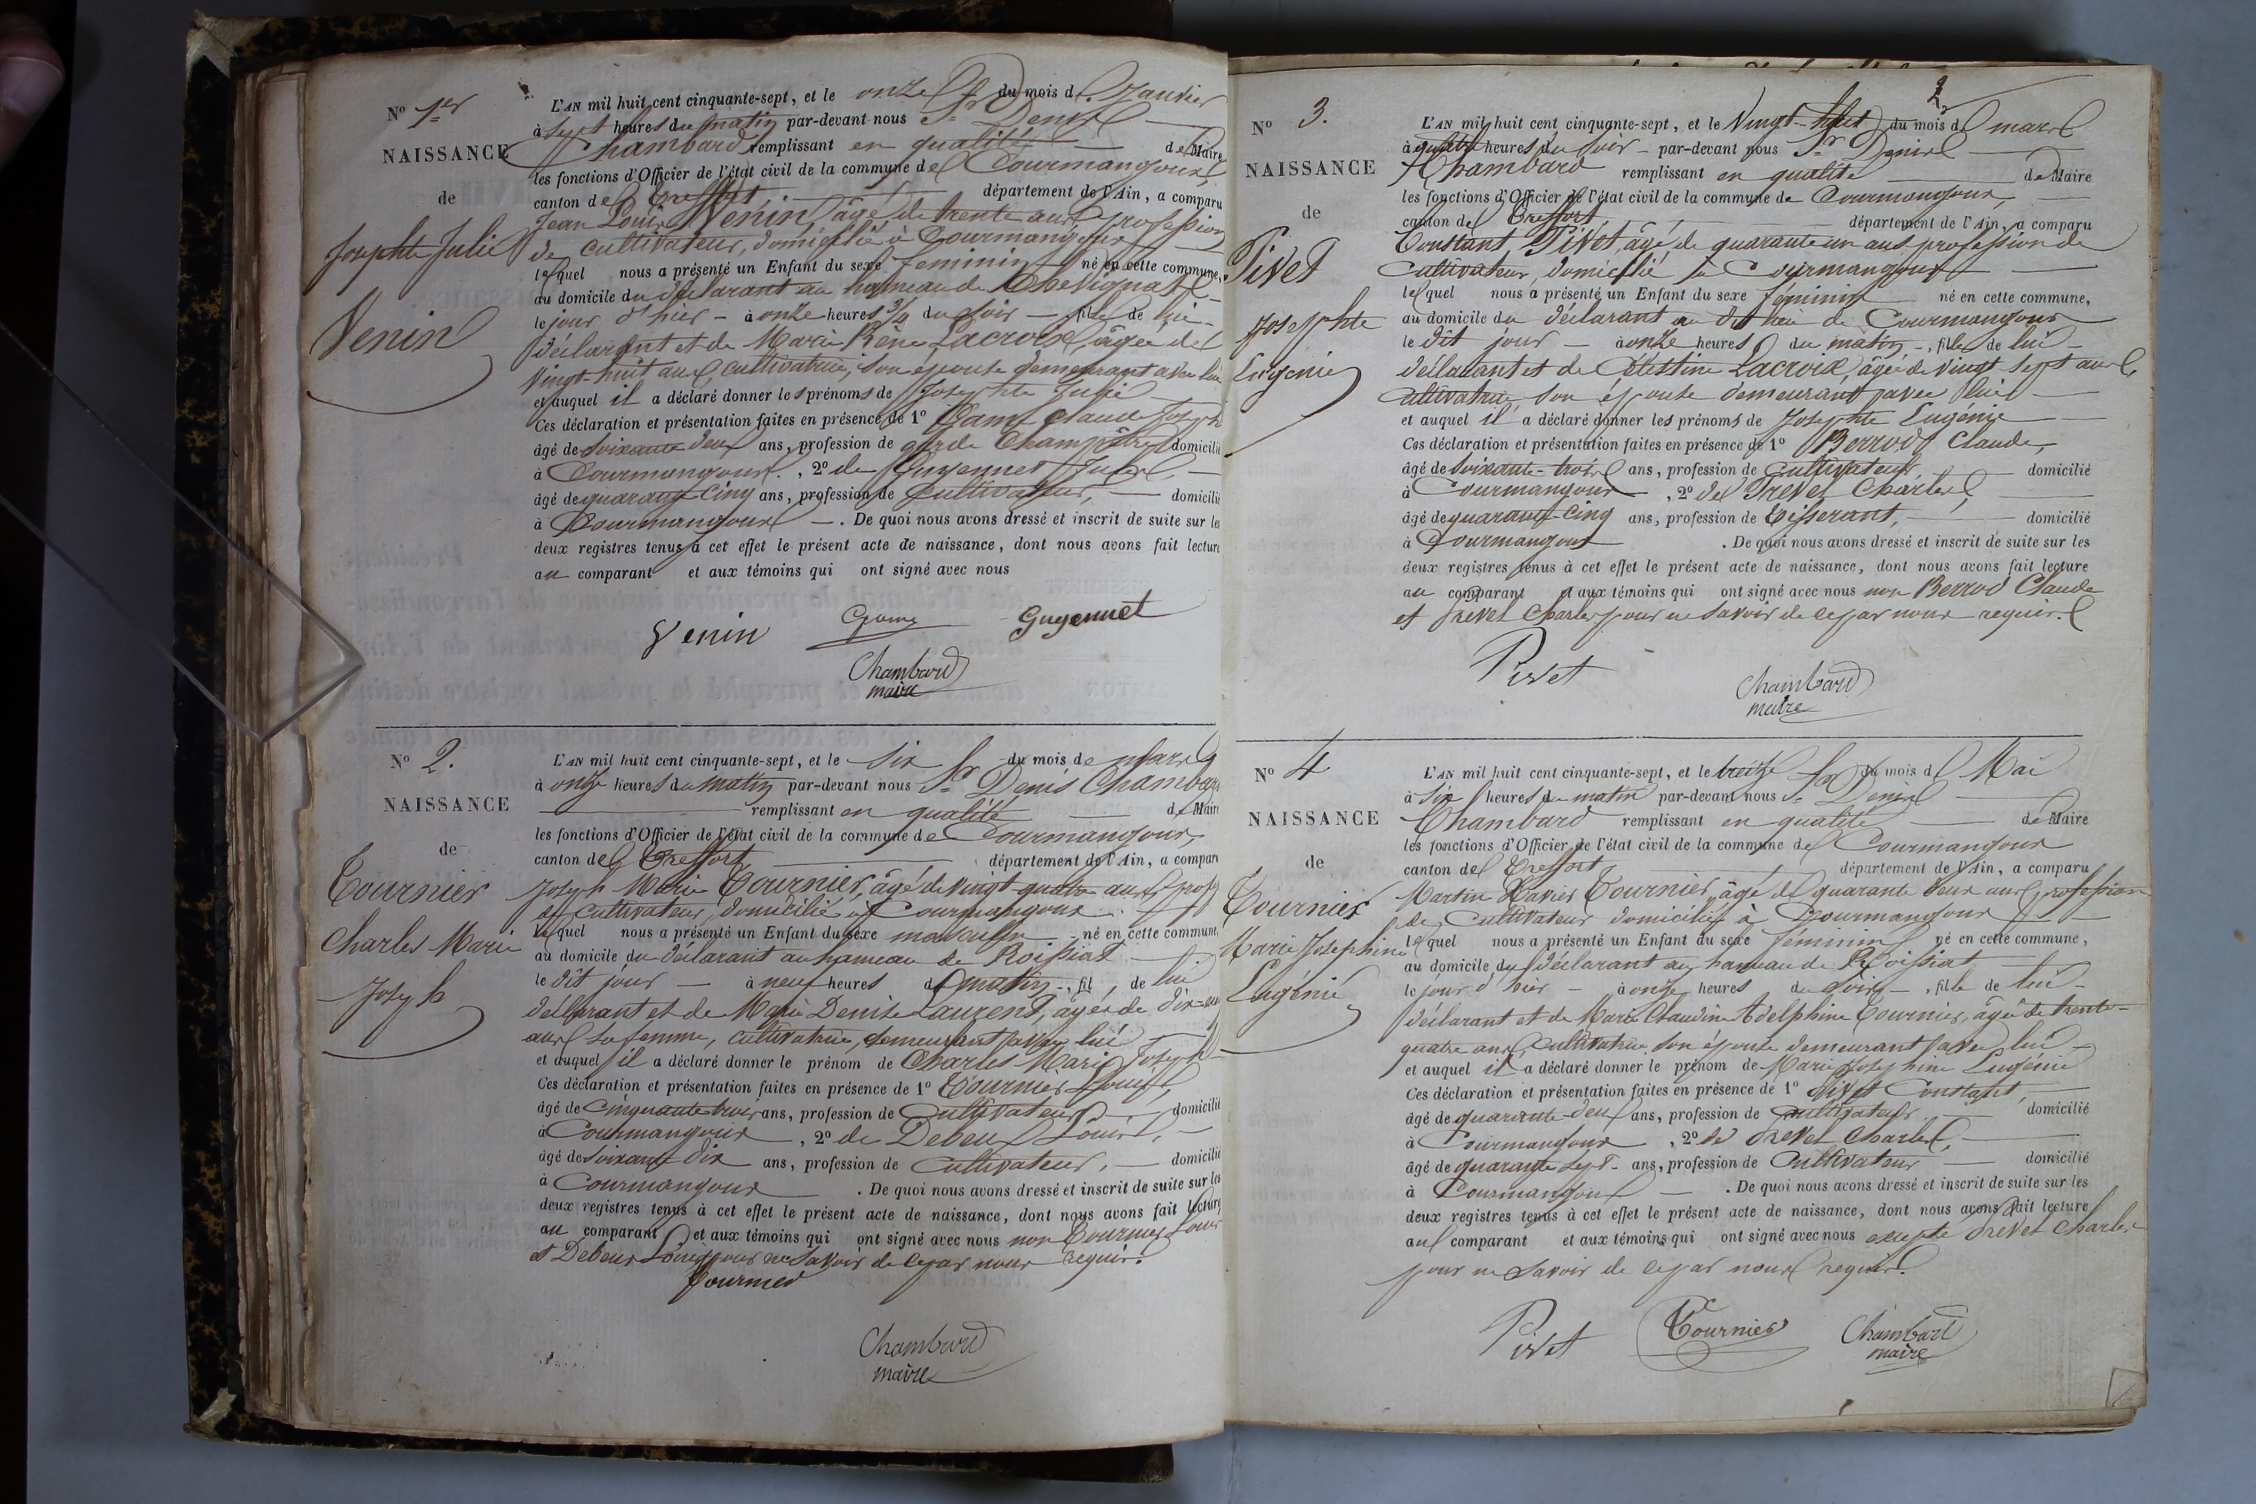 No 1er
NAISSANCE
de
Josephte Julie
Venin
L'AN mil huit cent cinquante-sept, et le onze du mois de Janvier
à sept heures du matin par-devant nous Sr Denis
Chambard remplissant en qualité de Maire
les fonctions d'Officier de l'état civil de la commune de Courmangoux,
canton de Treffort, département de l'Ain, a comparu
Jean Louis Venin, âgé de trente ans profession
de cultivateur, domicilié à Courmangoux
lequel nous a présenté un Enfant du sexe féminin né en cette commune,
au domicile du déclarant au hameau de Chevignat
le jour d'hier - à onze heures 3/4 du soir - fille de lui
déclarant et de Marie Lacroix, âgée de
vingt-huit ans, cultivatrice, son épouse demeurant avec lui
et auquel il a déclaré donner les prénoms de Josephte Julie
Ces déclaration et présentation faites en présence de 1o Claude Joseph
âgé de soixante deux ans, profession de garde champêtre domicilié
à Courmangoux, 2o de Guyennet
âgé de quarante cinq ans, profession de cultivateur, domicilié
à Courmangoux. De quoi nous avons dressé et inscrit de suite sur les
deux registres tenus à cet effet le présent acte de naissance, dont nous avons fait lecture
au comparant et aux témoins qui ont signé avec nous
Venin Guyennet
Chambard
maire
No 2.
NAISSANCE
de
Tournier
Charles Marie
Joseph
L'AN mil huit cent cinquante-sept, et le six du mois de mars
à onze heures du matin par-devant nous Sr Denis Chambard
remplissant en qualité de Maire
les fonctions d'Officier de l'état civil de la commune de Courmangoux,
canton de Treffort, département de l'Ain, a comparu
Joseph Marie Tournier, âgé de vingt-quatre ans prof
de cultivateur, domicilié à Courmangoux
lequel nous a présenté un Enfant du sexe masculin né en cette commune,
au domicile du déclarant au hameau de Roissiat
le dit jour à neuf heures du matin, fil, de lui
déclarant et de Marie Denise Laurent, âgée de dix-
ans sa femme, cultivatrice, demeurant avec lui
et auquel il a déclaré donner le prénom de Charles Marie Joseph
Ces déclaration et présentation faites en présence de 1o Tournier Louis,
âgé de cinquante trois ans, profession de cultivateur, domicilié
à Courmangoux, 2o de Debeux Louis,
âgé de soixante dix ans, profession de cultivateur, domicilié
à Courmangoux. De quoi nous avons dressé et inscrit de suite sur les
deux registres tenus à cet effet le présent acte de naissance, dont nous avons fait lecture
au comparant et aux témoins qui ont signé avec nous non Tournier Louis
et Debeux Louis pour ne savoir de ce par nous requis.
Tournier
Chambard
maire
2
No 3.
NAISSANCE
de
Pivet
Josephte
Eugénie
L'AN mil huit cent cinquante-sept, et le vingt-huit du mois de mars
à quatre heures du soir par-devant nous Sr Denis
Chambard remplissant en qualité de Maire
les fonctions d'Officier de l'état civil de la commune de Courmangoux,
canton de Treffort département de l'Ain, a comparu
Constant Pivet, âgé de quarante un ans profession de
cultivateur, domicilié à Courmangoux
lequel nous a présenté un Enfant du sexe féminin né en cette commune,
au domicile du déclarant au dit lieu de Courmangoux
le dit jour à onze heures du matin, fille de lui
déclarant et de Célestine Lacroix, âgée de vingt sept ans
cultivatrice, son épouse demeurant avec lui
et auquel il a déclaré donner les prénoms de Josephte Eugénie
Ces déclaration et présentation faites en présence de 1o Berrod Claude,
âgé de soixante-trois ans, profession de cultivateur domicilié
à Courmangoux, 2o de Trevel Charles,
âgé de quarante-cinq ans, profession de tisserant, domicilié
à Courmangoux. De quoi nous avons dressé et inscrit de suite sur les
deux registres tenus à cet effet le présent acte de naissance, dont nous avons fait lecture
au comparant et aux témoins qui ont signé avec nous non Berrod Claude
et Trevel Charles pour ne savoir de ce par nous requis.
Pivet
Chambard
maire
No 4
NAISSANCE
de
Tournier
Marie Josephine
Eugénie
L'AN mil huit cent cinquante-sept, et le treize du mois de Mai
à six heures du matin par-devant nous Sr Denis
Chambard remplissant en qualité de Maire
les fonctions d'Officier de l'état civil de la commune de Courmangoux
canton de Treffort département de l'Ain, a comparu
Martin Xavier Tournier, âgé de quarante deux ans profession
de cultivateur domicilié à Courmangoux
lequel nous a présenté un Enfant du sexe féminin né en cette commune,
au domicile du déclarant au hameau de Roissiat
le jour d'hier - à onze heures du soir, fille de lui
déclarant et de Marie Claudine Adelphine Tournier, âgée de trente-
quatre ans, cultivatrice, son épouse demeurant avec lui
et auquel il a déclaré donner le prénom de Marie Josephine Eugénie
Ces déclaration et présentation faites en présence de 1o Pivet Constant,
âgé de quarante-deux ans, profession de cultivateur domicilié
à Courmangoux, 2o de Trevel Charles,
âgé de quarante sept ans, profession de cultivateur domicilié
à Courmangoux. De quoi nous avons dressé et inscrit de suite sur les
deux registres tenus à cet effet le présent acte de naissance, dont nous avons fait lecture
au comparant et aux témoins qui ont signé avec nous excepté Trevel Charles
pour ne savoir de ce par nous requis.
Pivet Tournier Chambard
maire